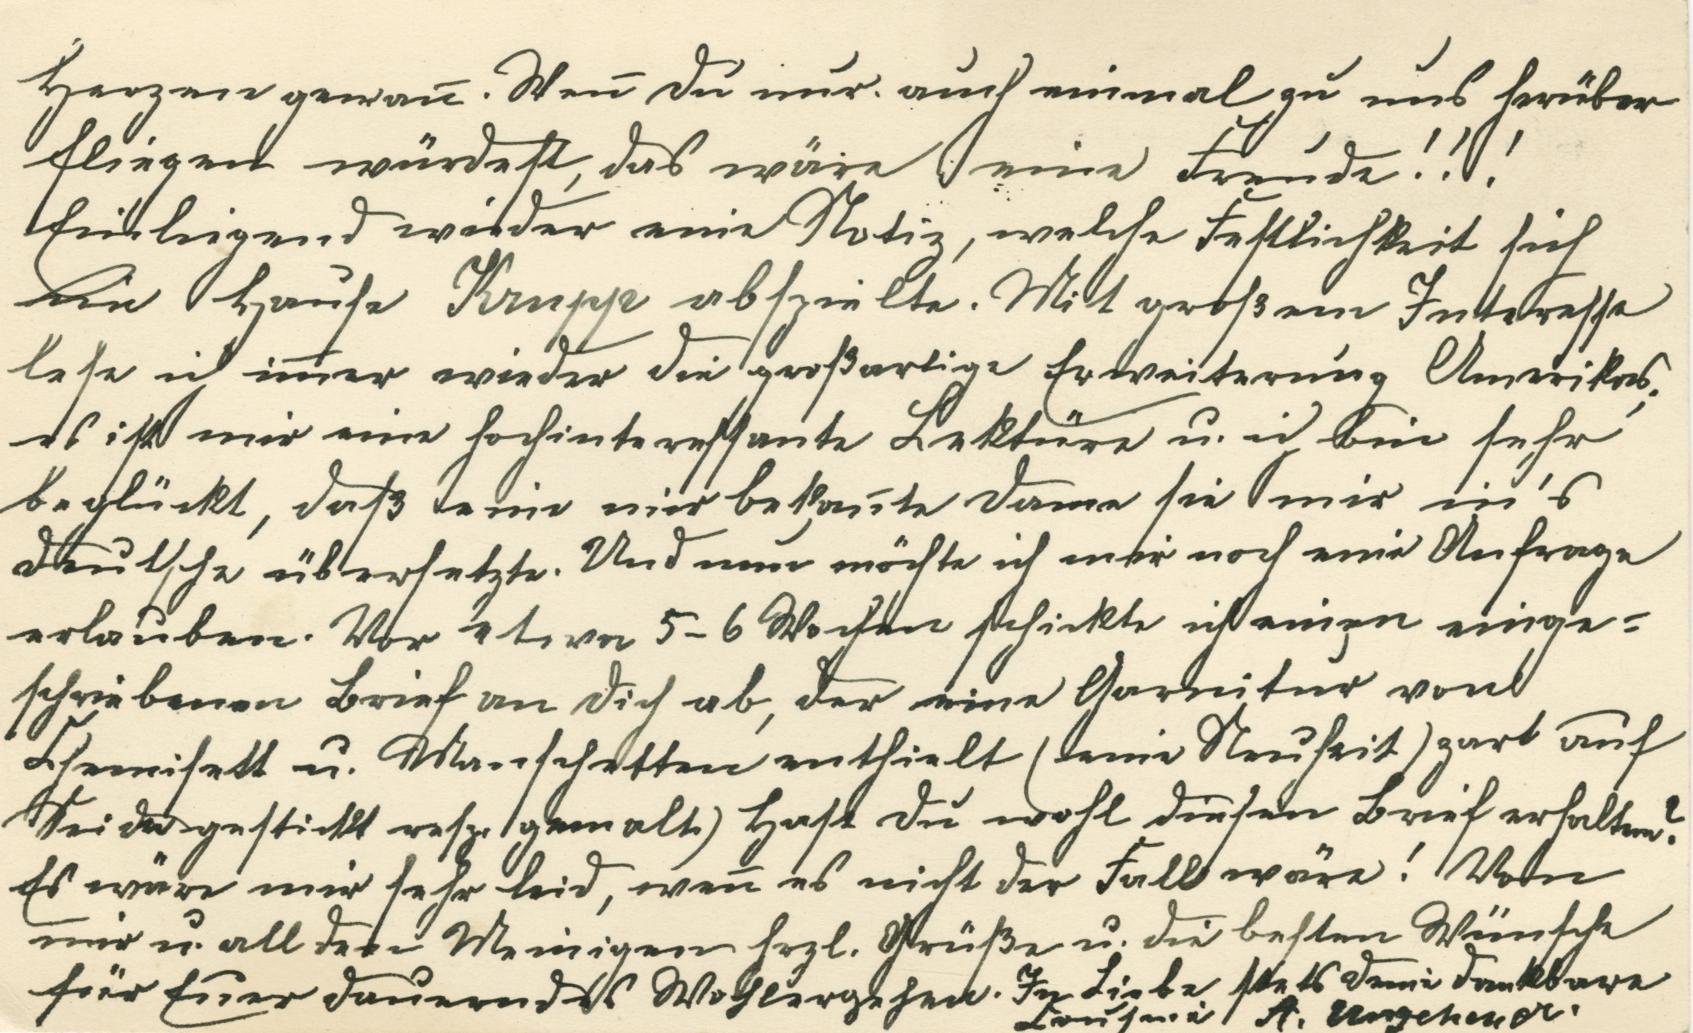 Herzen gewann̄. Wen̄ Du nur auch einmal zu uns herüber
fliegen würdest, das wäre eine Freude!!!
Einliegend wieder eine Notiz, welche Festlichkeit sich
im Hause Krupp abspielte. Mit großem Interesse
lese ich im̄er wieder die großartige Erweiterung Amerikas,
es ist mir eine hochinteressante Lektüre u. ich bin sehr
beglückt, daß eine mir bekan̄te Dame sie mir in's
deutsche übersetzte. Und nun möchte ich mir noch eine Anfrage
erlauben. Vor etwa 5-6 Wochen schickte ich einen einge=
schriebenen Brief an Dich ab, der eine Garnitur von
Chemisett u. Manschetten enthielt (eine Neuheit) zart auf
Seide gestickt resp. gemalt.) Hast Du wohl diesen Brief erhalten?
Es wäre mir sehr leid, wen̄ es nicht der Fall wäre! Von
mir u. all den Meinigen hrzl. Grüße u. die besten Wünsche
für Euer dauerndes Wohlergehen. In Liebe stets Deine dankbare
A.